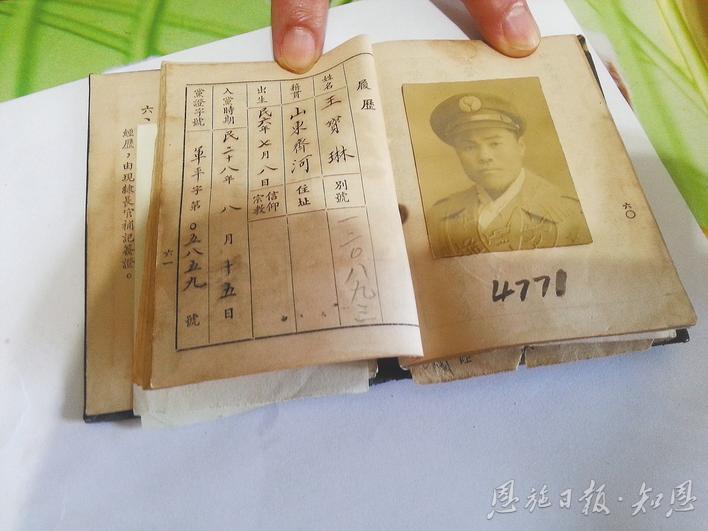 六〇
4771
履歷
姓名 王寶琳 別號
一二〇八九三
籍貫 山東齊河 住址
出生 民六年七月八日 信仰宗教
入黨時期 民二十八年八月十五日
黨證字號 軍平字第〇五八五九號
六一
六、
經歷,由現隸長官補記簽證。
恩施日报·知恩